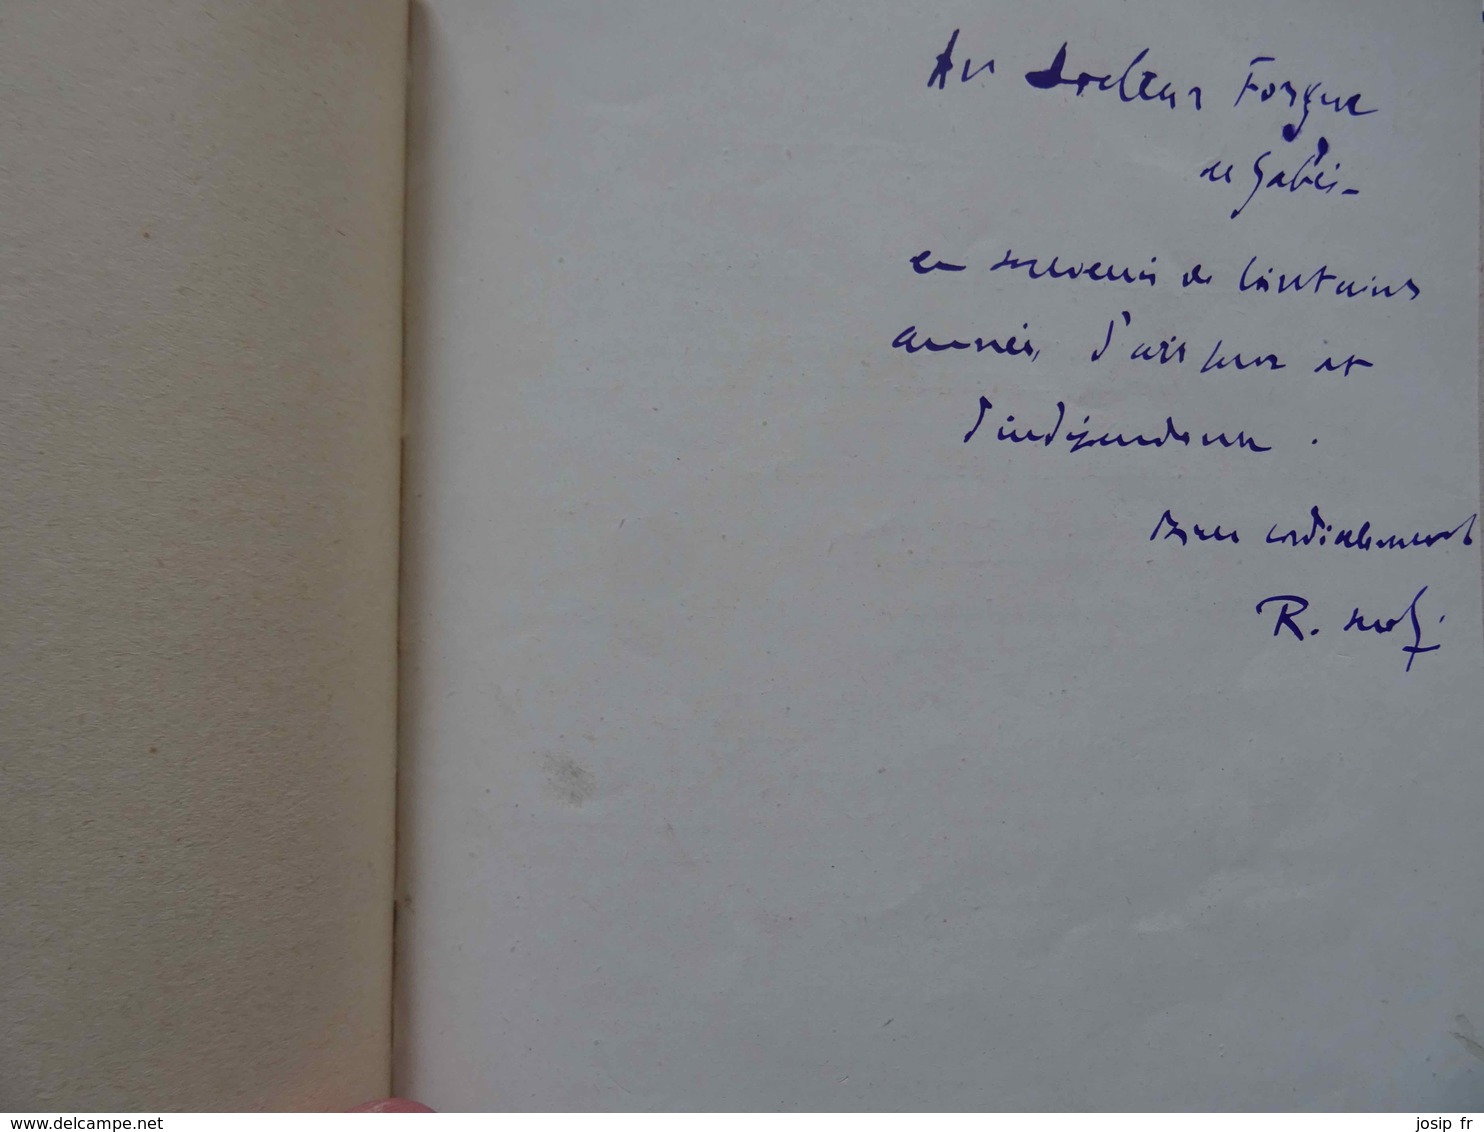 Au Docteur Forgue
de Gabès -
en souvenir de lointaines
années, d'aisance et
d'indépendance.
Bien cordialement
R.
www.delcampe.net
josip fr